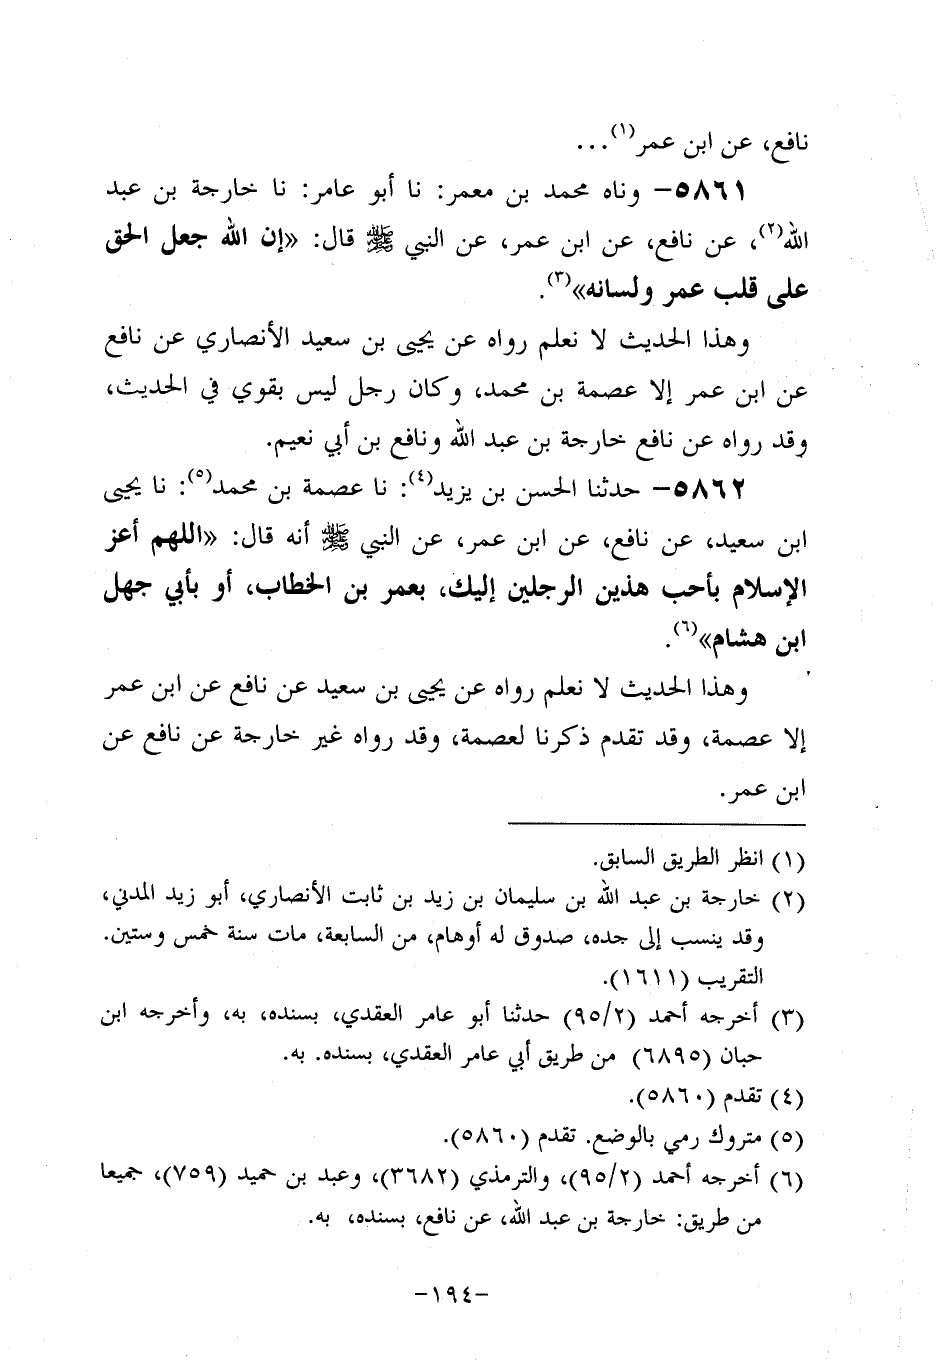 نافع، عن ابن عمر(١)...
٥٨٦١– وناه محمد بن معمر: نا أبو عامر: نا خارجة بن عبد
الله(٢)، عن نافع، عن ابن عمر، عن النبي ﷺ قال: «إن الله جعل الحق
على قلب عمر ولسانه»(٣).
وهذا الحديث لا نعلم رواه عن يحيى بن سعيد الأنصاري عن نافع
عن ابن عمر إلا عصمة بن محمد، وكان رجل ليس بقوي في الحديث،
وقد رواه عن نافع خارجة بن عبد الله ونافع بن أبي نعيم.
٥٨٦٢– حدثنا الحسن بن يزيد(٤): نا عصمة بن محمد(٥): نا يحيى
ابن سعيد، عن نافع، عن ابن عمر، عن النبي ﷺ أنه قال: «اللهم أعز
الإسلام بأحب هذين الرجلين إليك، بعمر بن الخطاب، أو بأبي جهل
ابن هشام»(٦).
وهذا الحديث لا نعلم رواه عن يحيى بن سعيد عن نافع عن ابن عمر
إلا عصمة، وقد تقدم ذكرنا لعصمة، وقد رواه غير خارجة عن نافع عن
ابن عمر.
(١) انظر الطريق السابق.
(٢) خارجة بن عبد الله بن سليمان بن زيد بن ثابت الأنصاري، أبو زيد المدني،
وقد ينسب إلى جده، صدوق له أوهام، من السابعة، مات سنة خمس وستين.
التقريب (١٦١١).
(٣) أخرجه أحمد (٩٥/٢) حدثنا أبو عامر العقدي، بسنده، به، وأخرجه ابن
حبان (٦٨٩٥) من طريق أبي عامر العقدي، بسنده. به.
(٤) تقدم (٥٨٦٠).
(٥) متروك رمي بالوضع. تقدم (٥٨٦٠).
(٦) أخرجه أحمد (٩٥/٢)، والترمذي (٣٦٨٢)، وعبد بن حميد (٧٥٩)، جميعا
من طريق: خارجة بن عبد الله، عن نافع، بسنده، به.
–١٩٤–